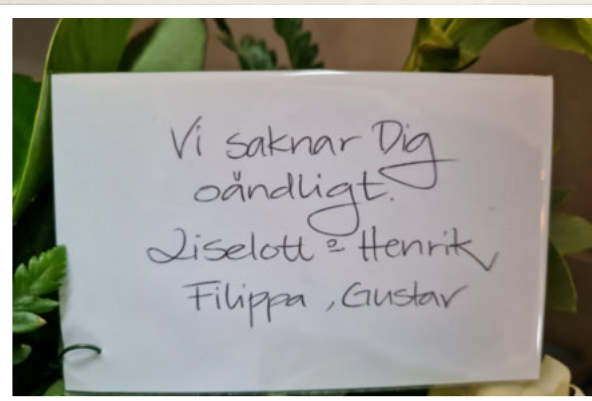 Vi saknar Dig
oändligt.
Liselott o Henrik
Filippa, Gustav